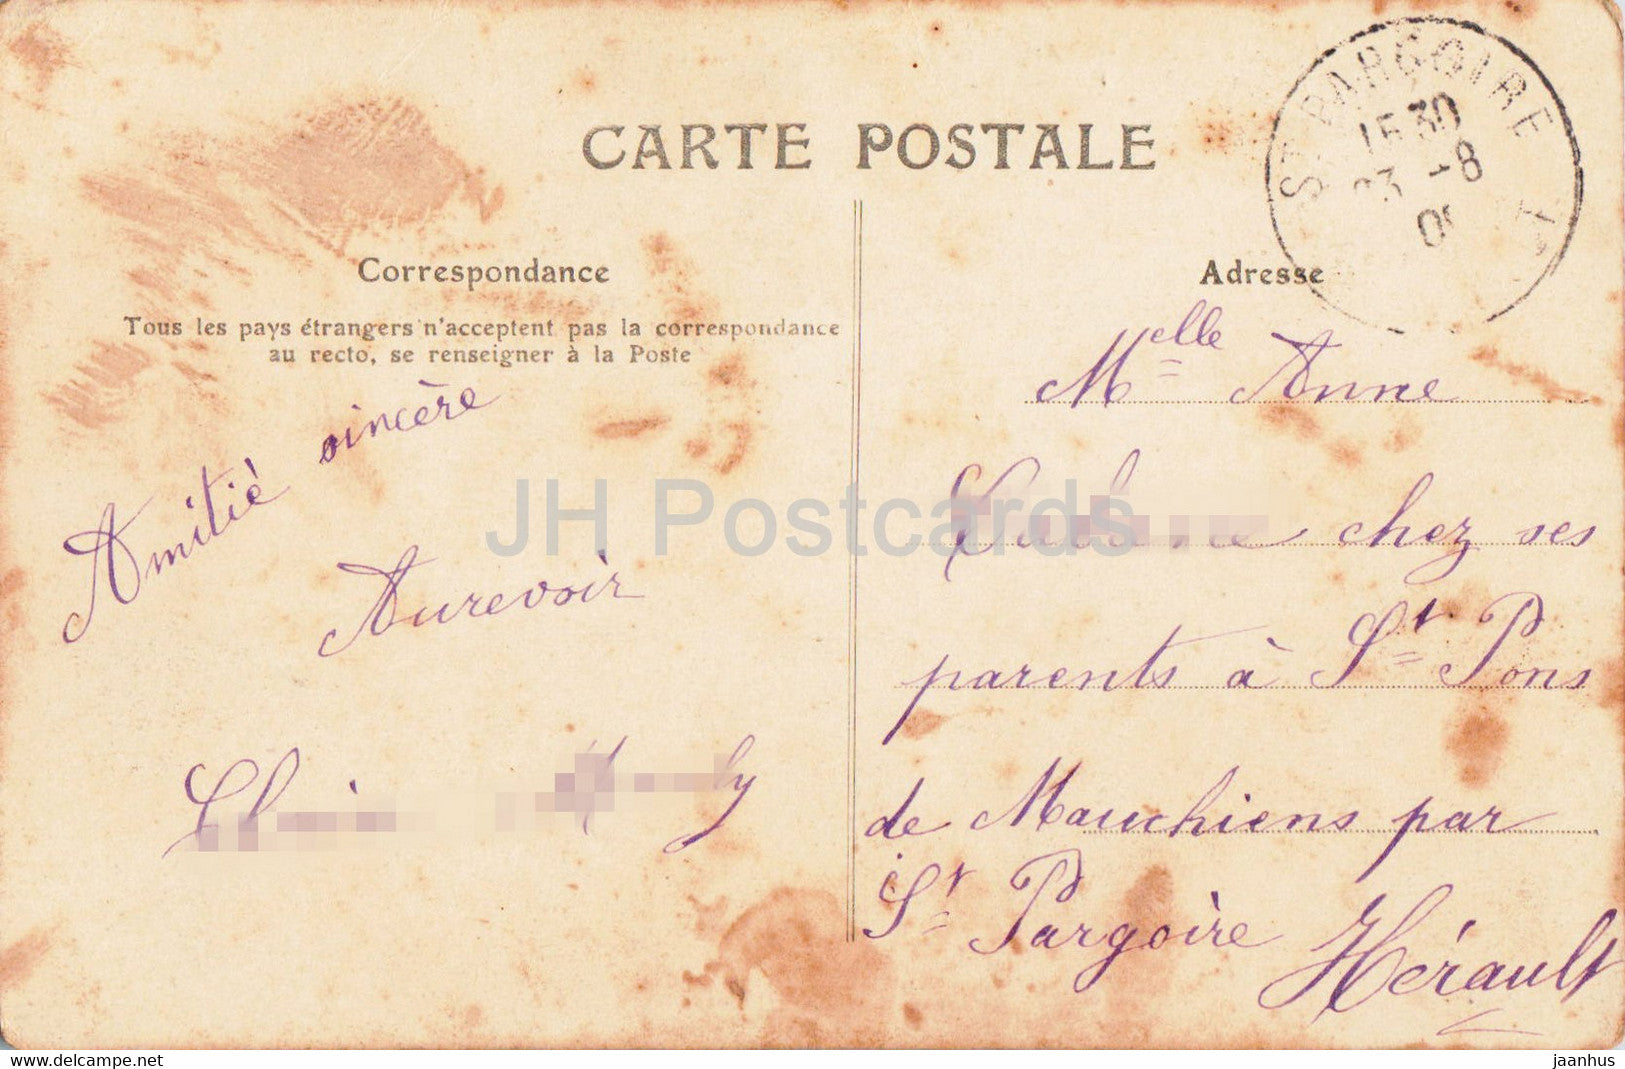 CARTE POSTALE
ST PARGOIRE
15 30
-8
Correspondance
Tous les pays étrangers n'acceptent pas la correspondance
au recto, se renseigner à la Poste
Amitié sincère
Aurevoir
Adresse
Melle Anne
chez ses
parents à St Pons
de Mauchiens par
St Pargoire Hérault
JH Postcards
https://www.delcampe.net
jaanhus